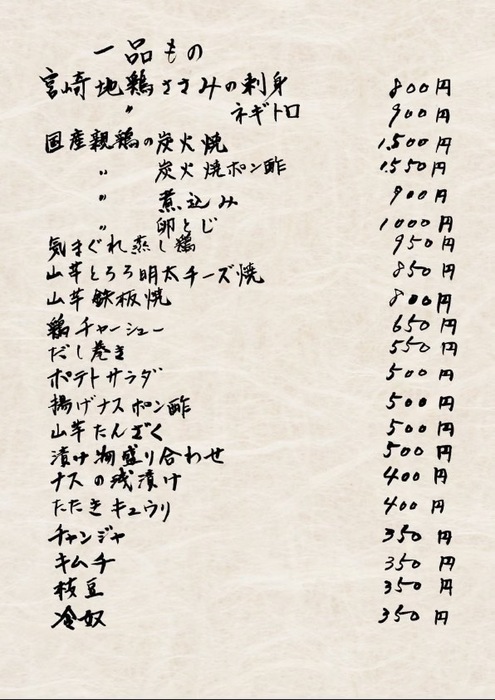 一品もの
宮崎地鶏ささみの刺身 800円
〃 ネギトロ 900円
国産親鶏の炭火焼 1,500円
〃 炭火焼ポン酢 1550円
〃 煮込み 900円
〃 卵とじ 1000円
気まぐれ蒸し鶏 950円
山芋とろろ明太チーズ焼 850円
山芋鉄板焼 800円
鶏チャーシュー 650円
だし巻き 550円
ポテトサラダ 500円
揚げナスポン酢 500円
山芋たんざく 500円
漬け物盛り合わせ 500円
ナスの浅漬け 400円
たたきキュウリ 400円
チャンジャ 350円
キムチ 350円
枝豆 350円
冷奴 350円